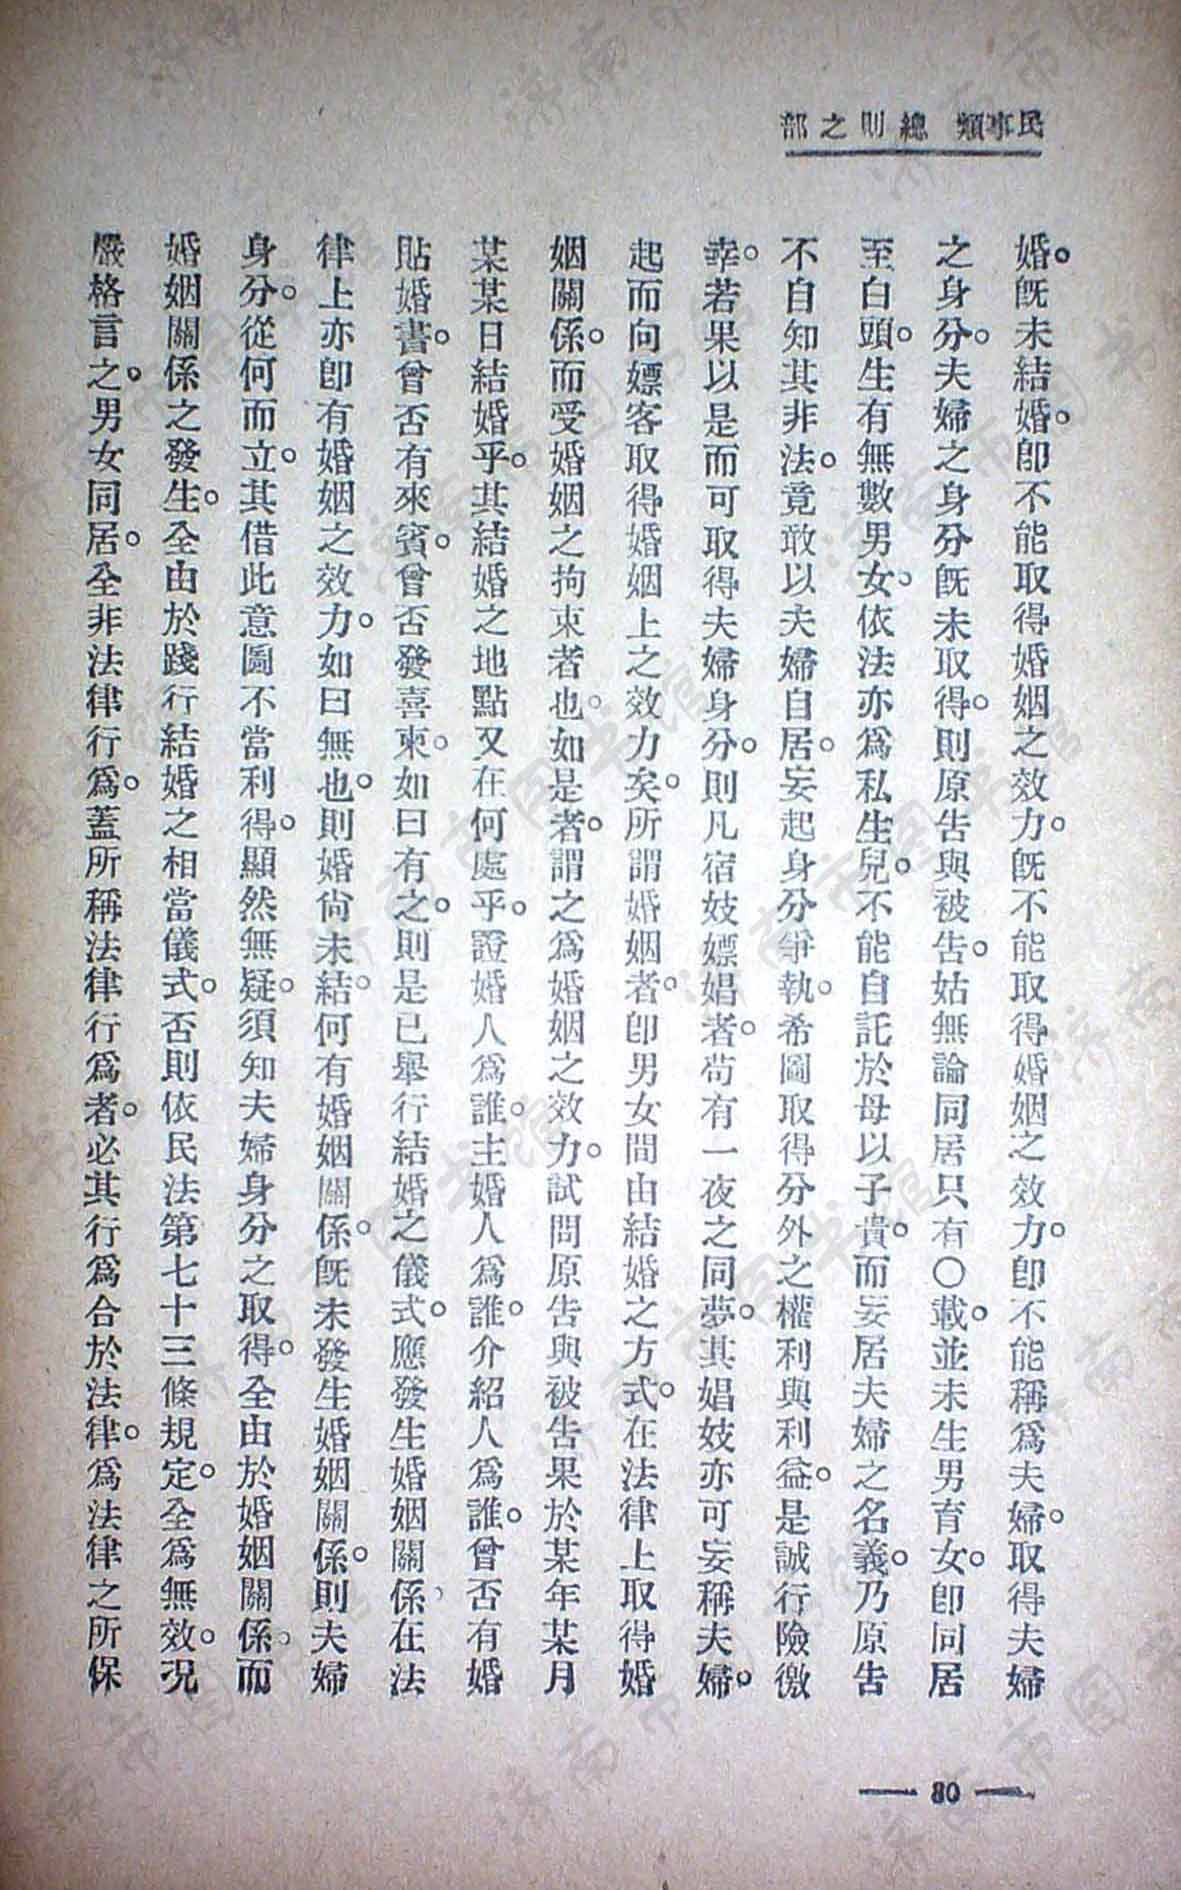 民事類 總則之部
婚。既未結婚。即不能取得婚姻之效力。既不能取得婚姻之效力。即不能稱爲夫婦。取得夫婦
之身分。夫婦之身分既未取得。則原告與被告。姑無論同居只有〇載。並未生男育女。即同居
至白頭。生有無數男女。依法亦爲私生兒。不能自託於母以子貴。而妄居夫婦之名義。乃原告
不自知其非法。竟敢以夫婦自居。妄起身分爭執。希圖取得分外之權利與利益。是誠行險徼
幸。若果以是而可取得夫婦身分。則凡宿妓嫖娼者。苟有一夜之同夢。其娼妓亦可妄稱夫婦。
起而向嫖客取得婚姻上之效力矣。所謂婚姻者。即男女間由結婚之方式。在法律上取得婚
姻關係。而受婚姻之拘束者也。如是者。謂之爲婚姻之效力。試問原告與被告果於某年某月
某某日結婚乎。其結婚之地點又在何處乎。證婚人爲誰。主婚人爲誰。介紹人爲誰。曾否有婚
貼婚書。曾否有來賓。曾否發喜柬。如曰有之。則是已舉行結婚之儀式。應發生婚姻關係、在法
律上亦即有婚姻之效力。如曰無也。則婚尙未結。何有婚姻關係。既未發生婚姻關係。則夫婦
身分。從何而立。其借此意圖不當利得。顯然無疑。須知夫婦身分之取得。全由於婚姻關係。而
婚姻關係之發生。全由於踐行結婚之相當儀式。否則依民法第七十三條規定。全爲無效。況
嚴格言之。男女同居。全非法律行爲。蓋所稱法律行爲者。必其行爲合於法律。爲法律之所保
— 80 —
济南市图书馆